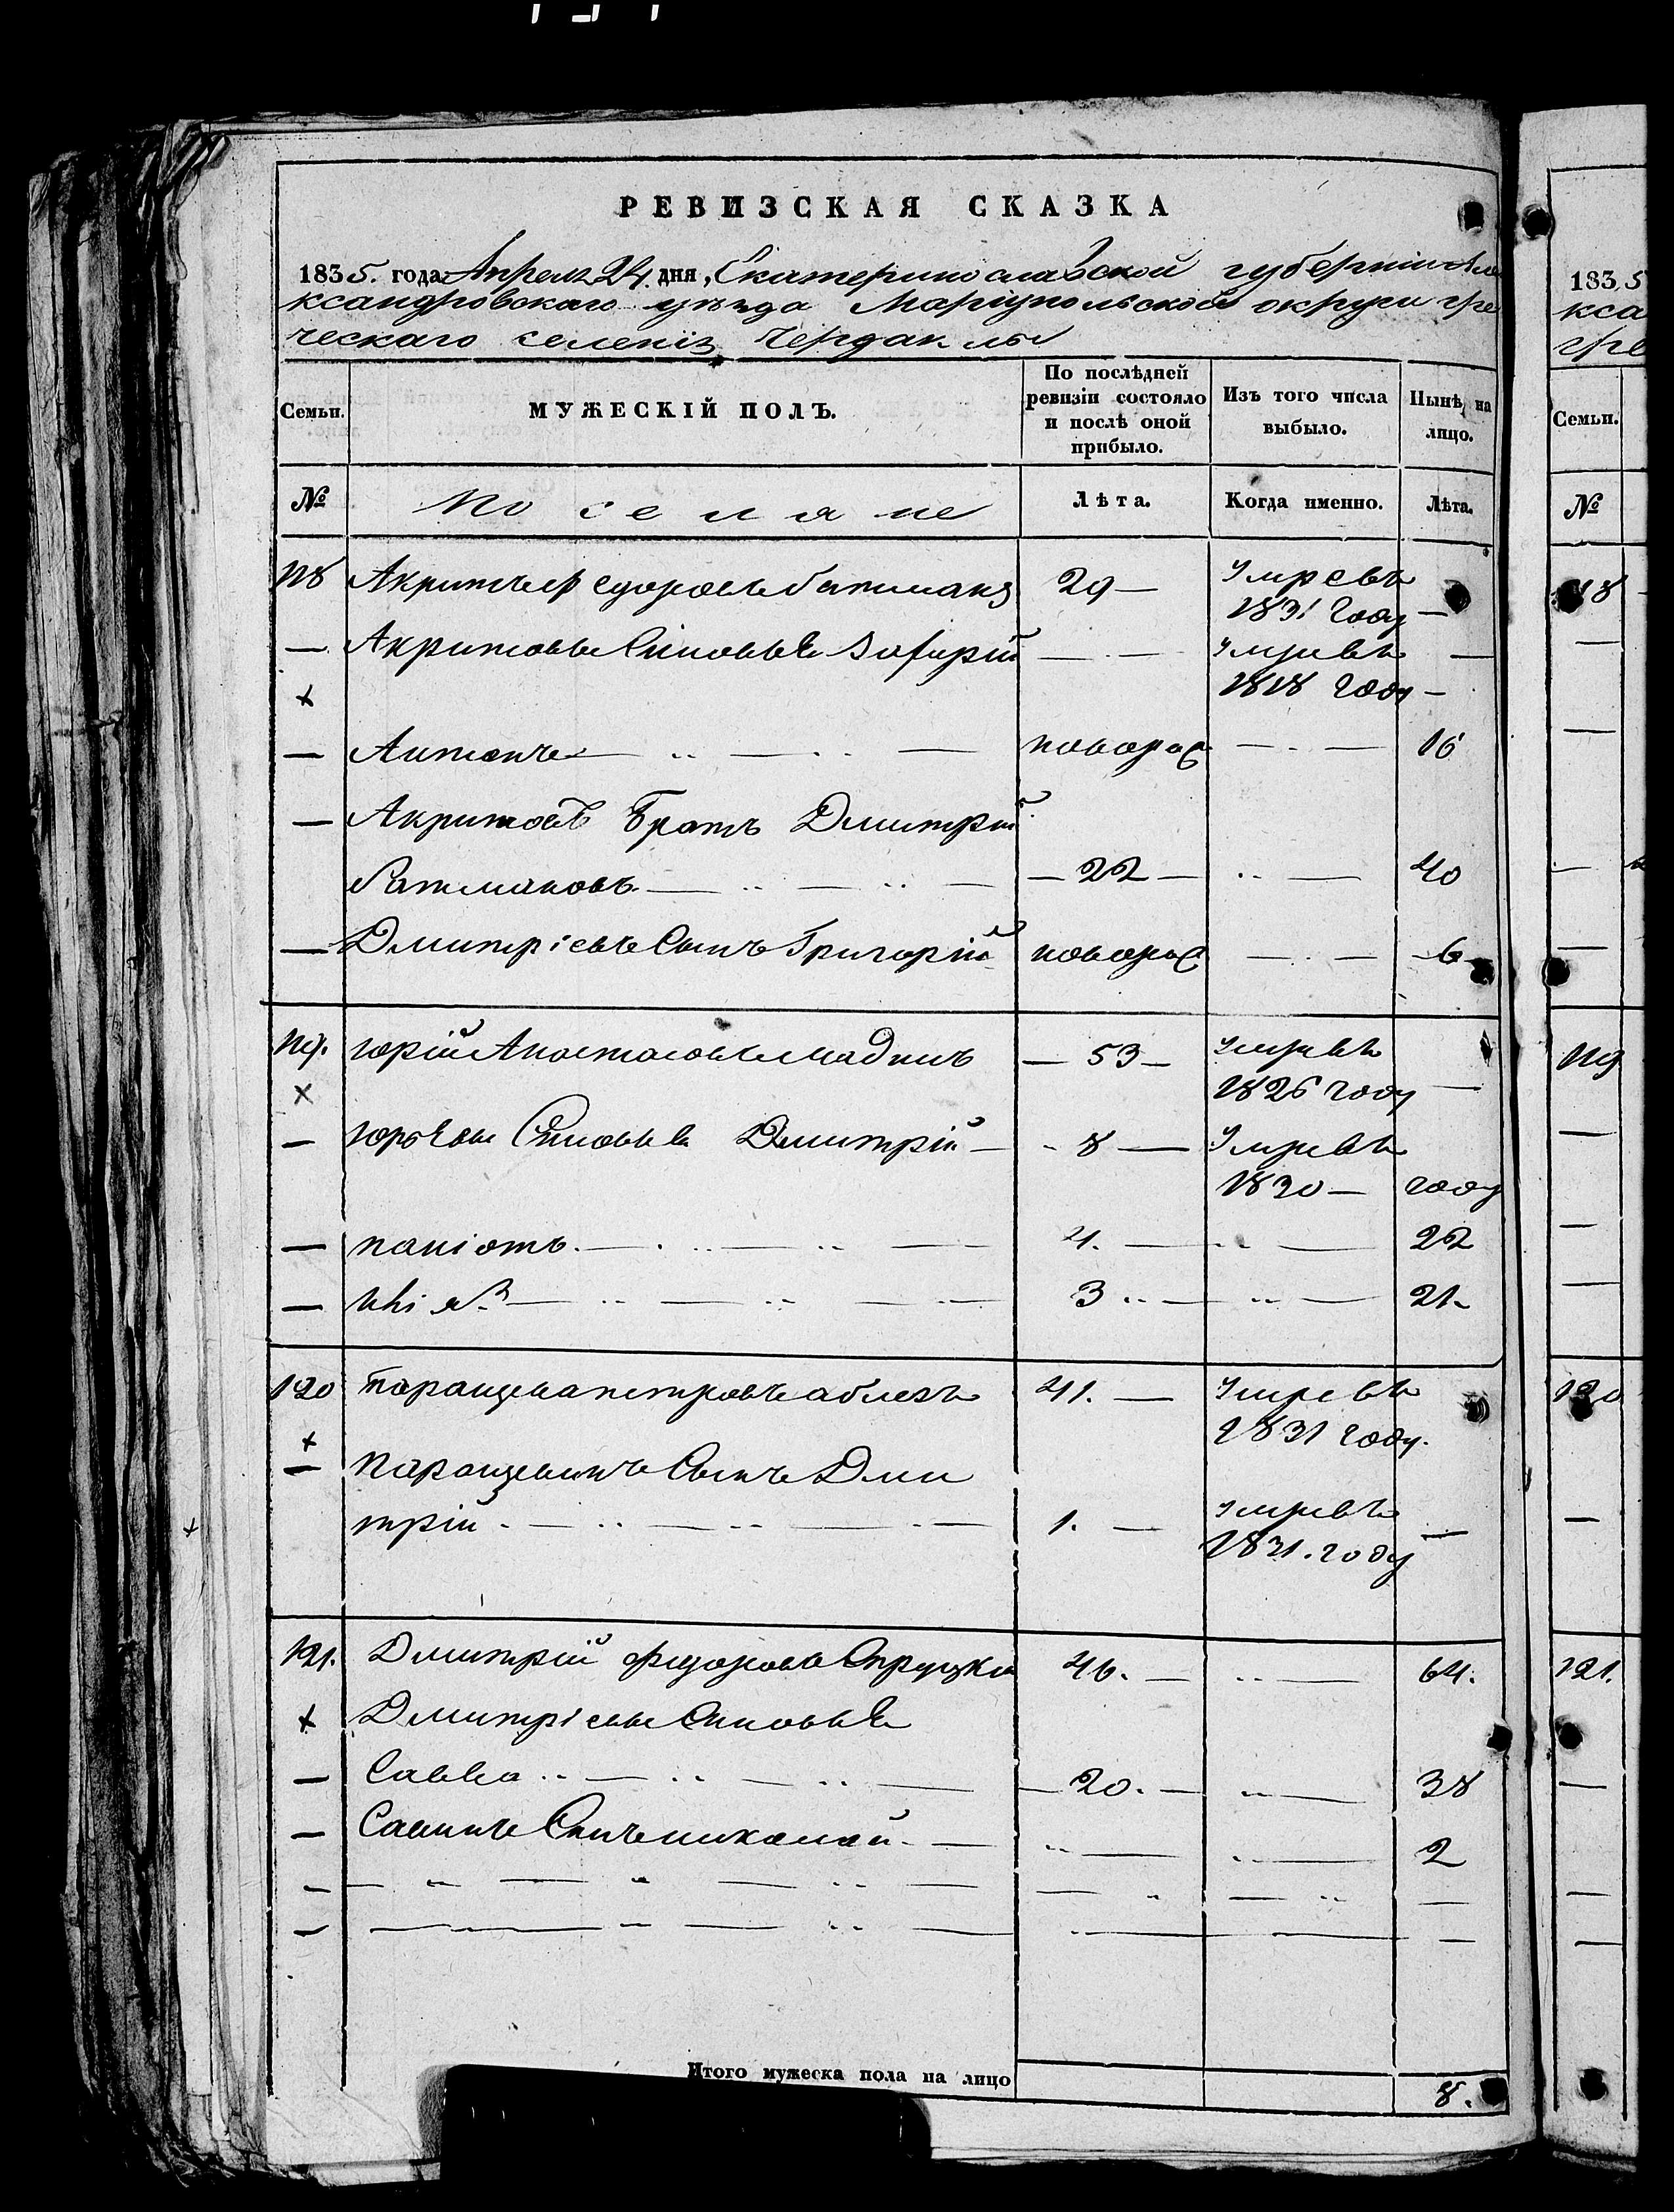 РЕВИЗСКАЯ СКАЗКА
1835. года Апреля 24. дня, Екатеринославской губерніи Але
ксандровскаго уѣзда Маріупольской округи гре
ческаго селенія Чердаклы
Семьи.
МУЖЕСКІЙ ПОЛЪ.
По послѣдней ревизіи состояло и послѣ оной прибыло.
Изъ того числа выбыло.
Нынѣ на лицо.
№ Поселяне Лѣта. Когда именно. Лѣта.
118 Акритъ Федоровъ 29 — умревъ
1831 году —
— Акритовы Синовья — умревъ —
х 1818 году —
— Антонъ новорож — 16
— Акритовъ братъ Дмитрій
— 22 — 40
— Дмитріевъ Сынъ Григорій новорож — 6
119. Юрій Анастасовъ — 53 — умревъ
х 1826 году —
— Юрьевы Синовья Дмитрій — 8 — умревъ
1830 — году
— паніотъ. 4. — 22
— 3 — 21
120 паращева петровъ 41. — умревъ
х 1831 году.
— Паращевинъ Сынъ Дми
х трій 1. — умревъ —
1831. году
121. Дмитрій федоровъ 46. — 64.
х Дмитріевы Синовья
— Савва — 20. — 38
— Саввинъ Синъ николай — 2
Итого мужеска пола на лицо 8.
1835
кса
гре
Семьи.
№
118
119
120
121.